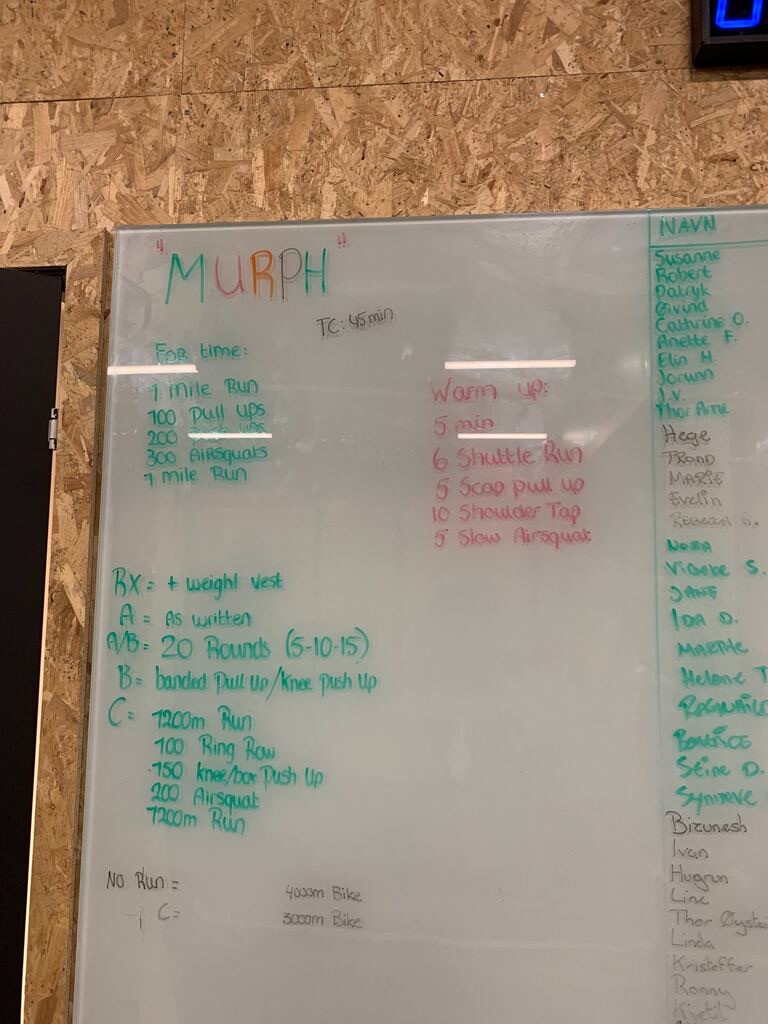 "MURPH"
TC: 45 min
For time:
1 mile Run
100 Pull ups
200 Push ups
300 AirSquats
1 mile Run
Warm up:
5 min
6 Shuttle Run
5 Scap pull up
10 Shoulder Tap
5 Slow Airsquat
RX = + weight vest
A = As written
A/B = 20 Rounds (5-10-15)
B = banded Pull Up/Knee Push Up
C = 1200m Run
100 Ring Row
150 knee/box Push Up
200 Airsquat
1200m Run
NO Run = 4000m Bike
-| C = 3000m Bike
NAVN
Susanne
Robert
Patryk
Øivind
Cathrine O.
Anette F.
Elin H.
Jorunn
J.V.
Thor Arne
Hege
TROND
MARIE
Evelin
Rebecca
NORA
Vibeke S.
JANE
IDA D.
MARTHE
Helene T
Ragnhild
Stine D.
Synnøve
Bizunesh
Ivan
Hugrun
Line
Thor Øystei
Linda
Kristoffer
Ronny
Kjetil